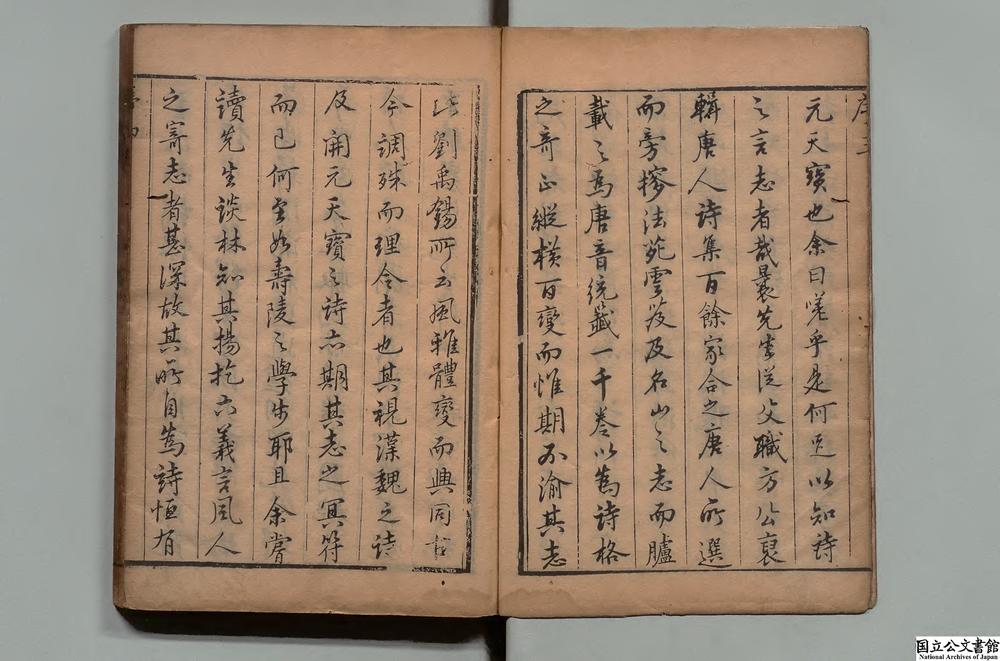 元天寶也余曰嗟乎是何足以知詩
之言志者哉曩先生從父職方公裒
輯唐人詩集百餘家合之唐人所選
而旁摉法苑雲笈及名山之志而臚
載之為唐音統籤一千卷以為詩格
之奇正縱橫百變而惟期不渝其志
此劉禹錫所云風雅體變而興同古
今調殊而理合者也其視漢魏之詩
及開元天寶之詩亦期其志之冥符
而已何至如壽陵之學步耶且余嘗
讀先生談林知其揚扢六義言風人
之寄志者甚深故其所自為詩恒有
国立公文書館
National Archives of Japan